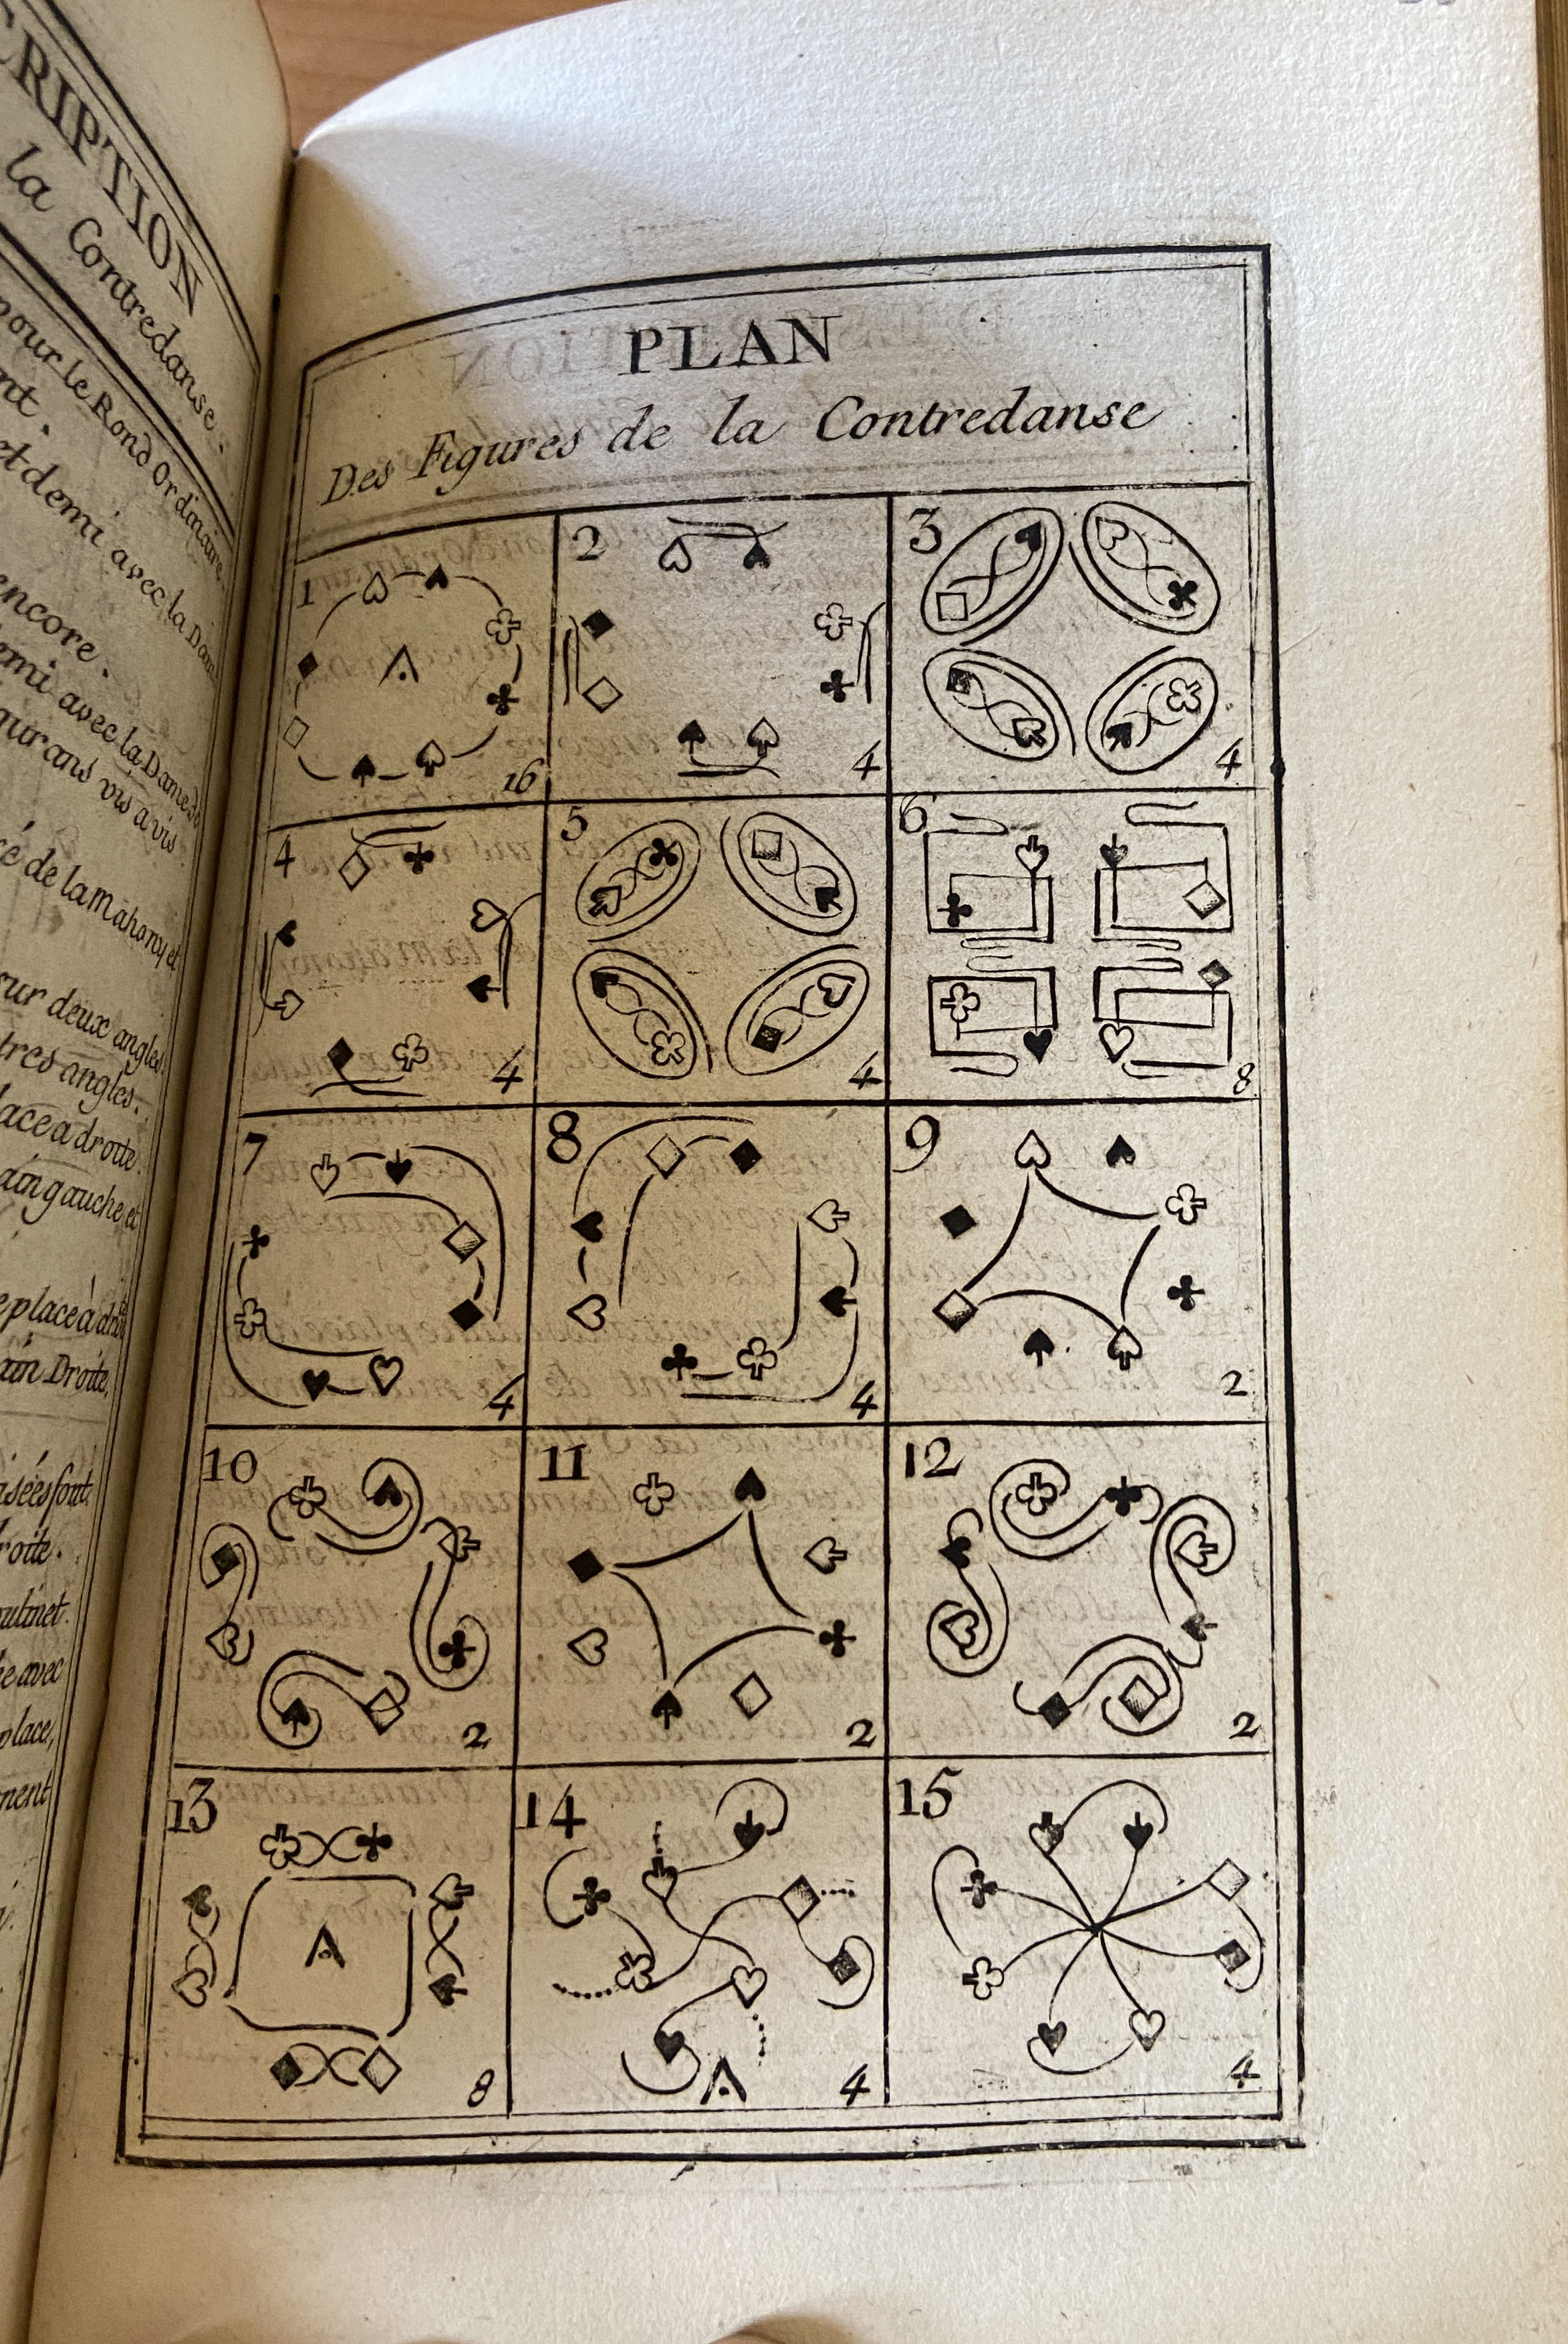 CRIPTION
la Contredanse.
pour le Rond Ordinaire.
nt.
et demi avec la Dame
encore.
emi avec la Dame de
gurans vis à vis.
cé de la Mahony et
sur deux angles
tres angles.
lace a droite.
ain gauche et
e place à droite
ain Droite,
isées font
roite.
oulinet.
he avec
place,
ment
PLAN
Des Figures de la Contredanse
1
A
16
2
4
3
4
4
4
5
4
6
8
7
4
8
4
9
2
10
2
11
2
12
2
13
A
8
14
A
4
15
4